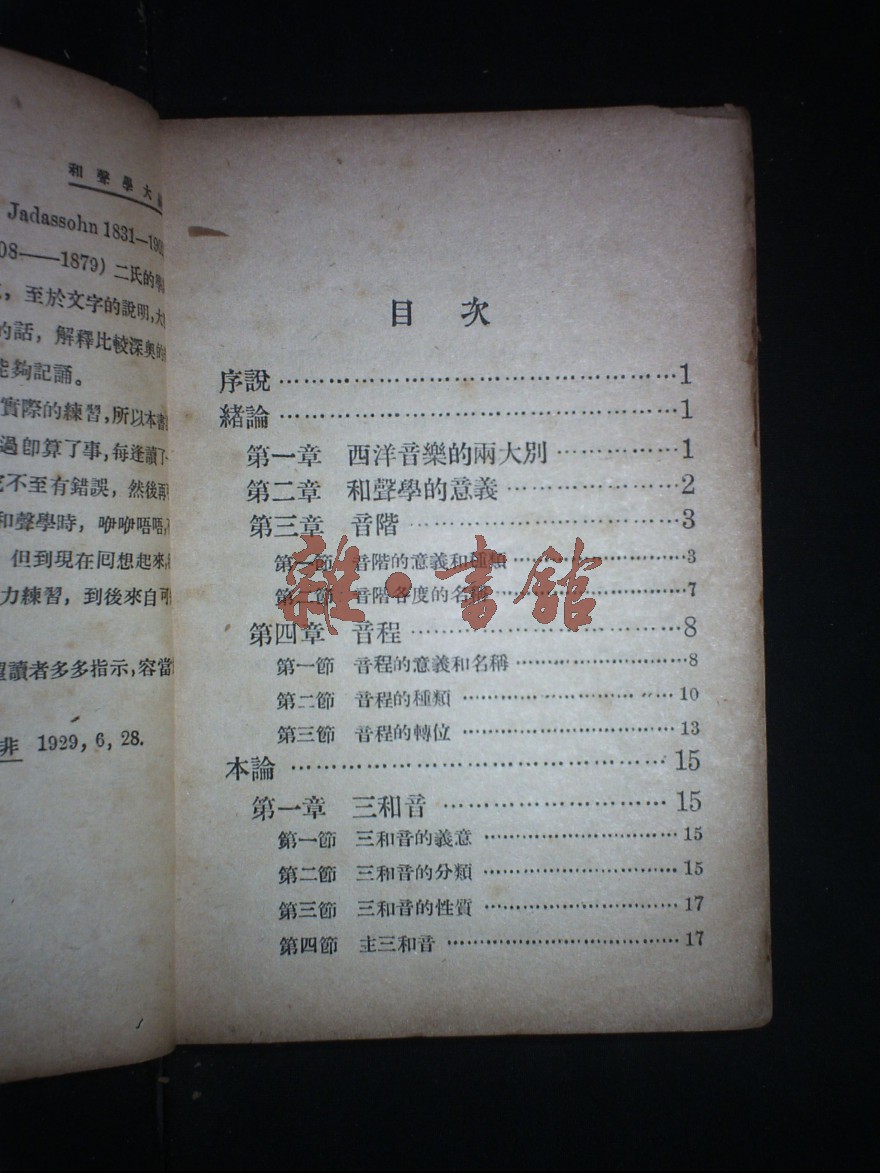 和聲學大
Jadassohn 1831—190
08——1879) 二氏的學
，至於文字的說明，大
的話，解釋比較深奧的
能夠記誦。
實際的練習，所以本書
過卽算了事，每逢讀了
不至有錯誤，然後再
和聲學時，咿咿唔唔，
但到現在囘想起來，
力練習，到後來自可
讀者多多指示，容當
非 1929，6，28.
目次
序說……………………………………………1
緒論……………………………………………1
第一章 西洋音樂的兩大別………………1
第二章 和聲學的意義……………………2
第三章 音階………………………………3
第一節 音階的意義和種類………………3
第二節 音階各度的名稱…………………7
第四章 音程………………………………8
第一節 音程的意義和名稱………………8
第二節 音程的種類………………………10
第三節 音程的轉位………………………13
本論……………………………………………15
第一章 三和音……………………………15
第一節 三和音的義意……………………15
第二節 三和音的分類……………………15
第三節 三和音的性質……………………17
第四節 主三和音…………………………17
雜·書館